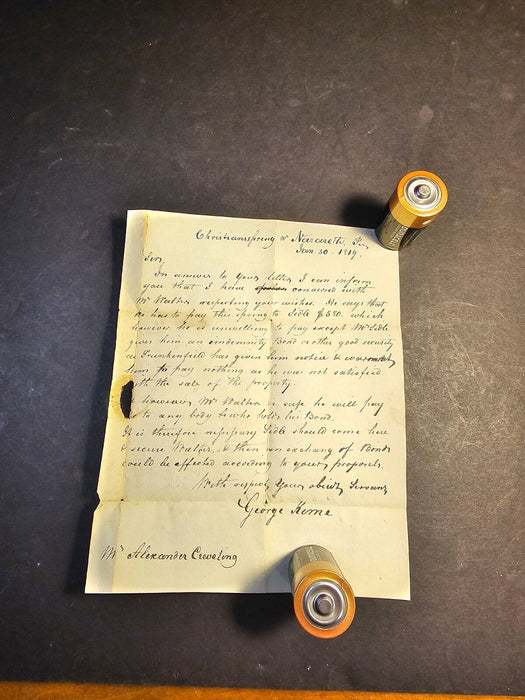 Christianspring nr Nazareth, Pa.
Jan. 30. 1819.
Sir,
In answer to your letter I can inform
you that I have conversed with
Mr Walter respecting your wishes. He says that
he has to pay this spring to Sidle $530. which
however he is unwilling to pay except Mr Sidle
gives him an endemnity Bond or other good security
as Frankenfield has given him notice &
him to pay nothing as he was not satisfied
with the sale of the property.
However Mr Walter is safe he will pay
to any body who holds his Bond.
It is therefore necessary Sidle should come here
& secure Walter, & then an exchang of Bonds
could be effected according to your proposels.
With respect Your obedt Servant
George Kime
Mr Alexander Creveling